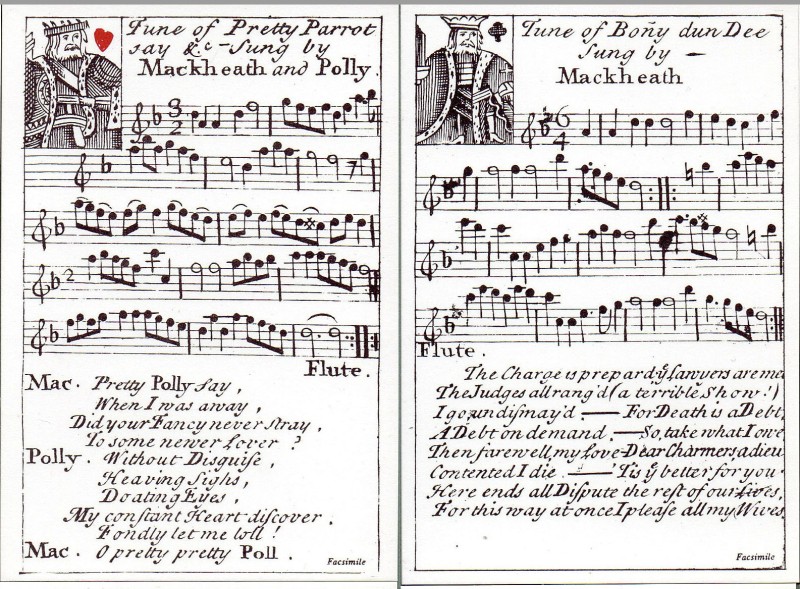 Tune of Pretty Parrot
say &.c - Sung by
Mackheath and Polly.
3
2
2
Flute.
Mac. Pretty Polly say,
When I was away,
Did your Fancy never stray,
To some newer Lover ?
Polly. Without Disguise,
Heaving Sighs,
Doating Eyes,
My constant Heart discover.
Fondly let me loll !
Mac. O pretty pretty Poll.
Facsimile
Tune of Boñy dun Dee
Sung by —
Mackheath
6
4
Flute.
The Charge is prepar'd ẏ Lawyers are me
The Judges all rang'd (a terrible Show!)
I go, undismay'd. — For Death is a Debt,
A Debt on demand. — So, take what I owe
Then farewell, my love - Dear Charmers, adieu
Contented I die. — 'Tis ẏ better for you.
Here ends all Dispute the rest of our Lives,
For this way at once I please all my Wives.
Facsimile